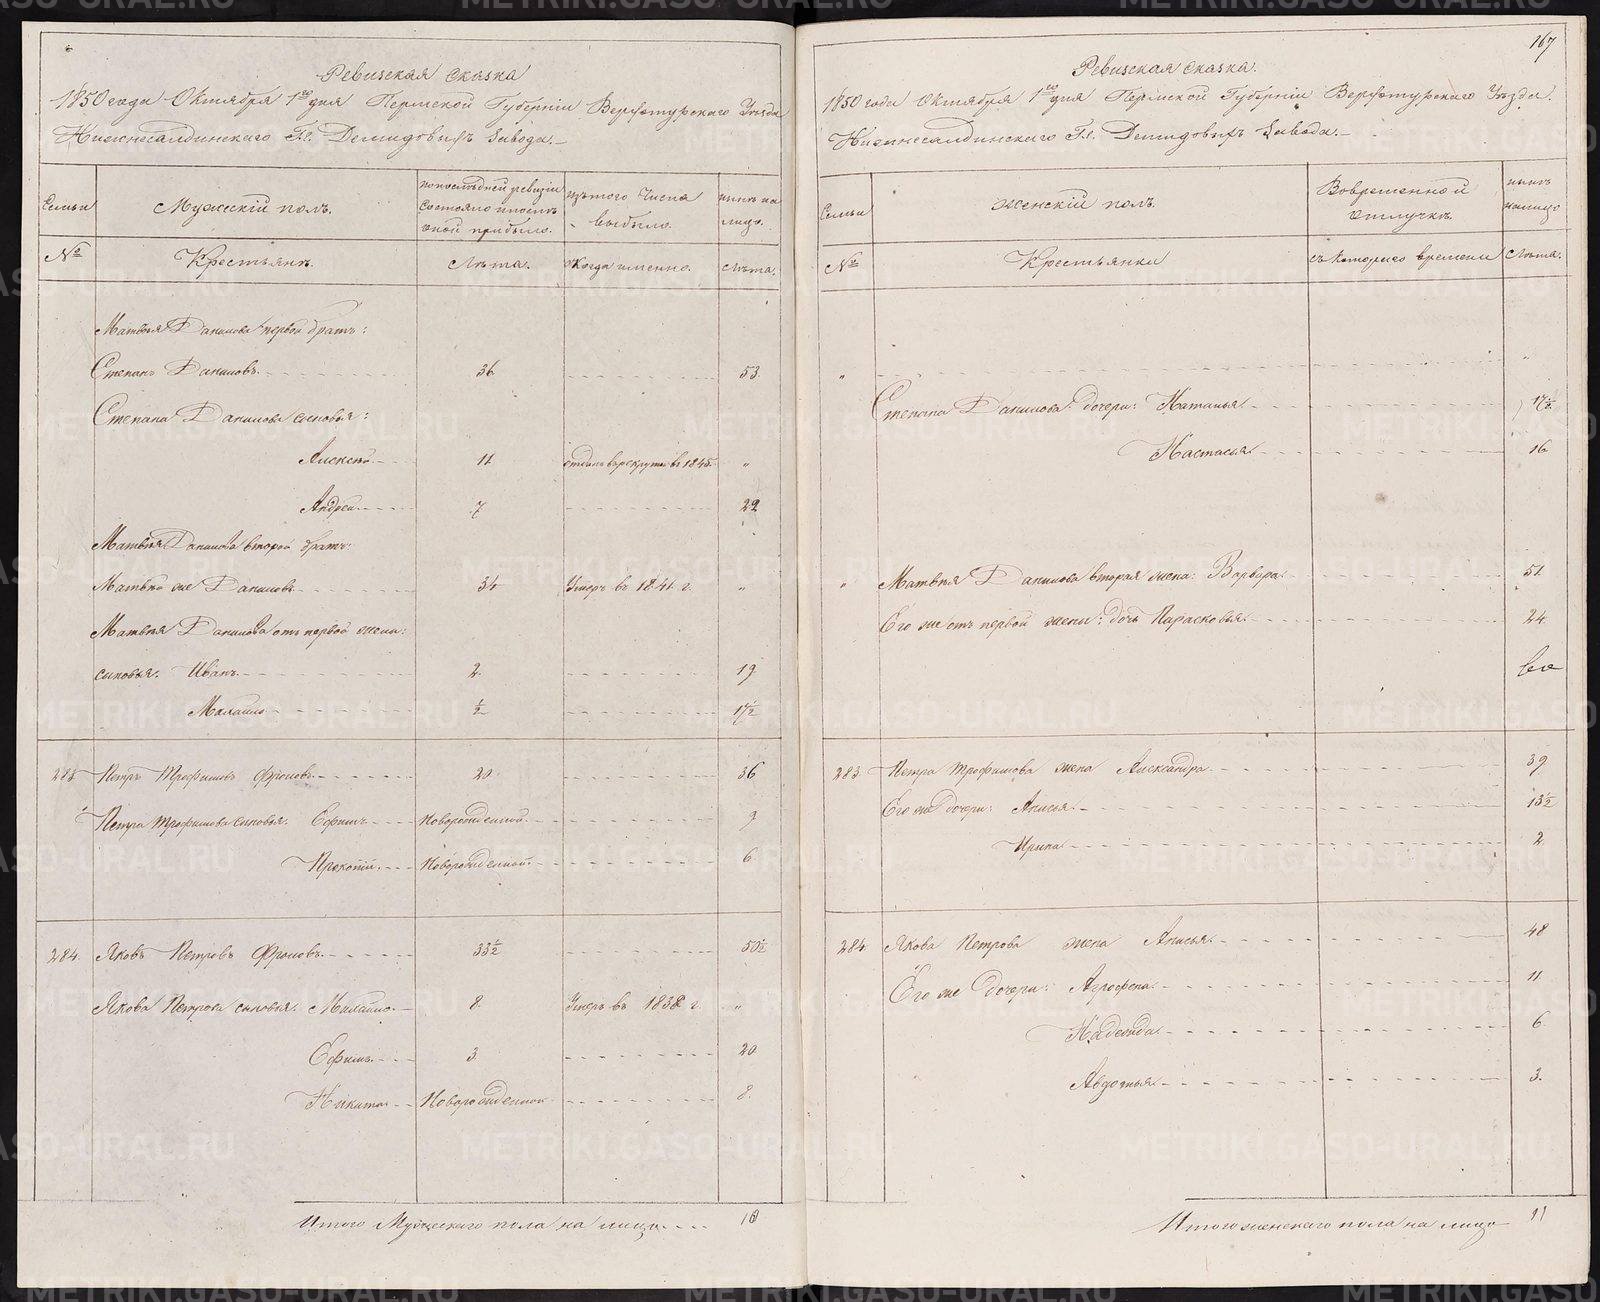 Ревизская сказка
1850 года Октября 1го дня Пермской Губернiи Верхотурскаго Уѣзда
Нижнесалдинскаго Г.г. Демидовыхъ Завода.
Семьи
Мужескiй полъ.
по последней ревизiи состояло и после оной прибыло.
изъ того числа выбыло.
нынѣ на лицо.
№
Крестьянъ.
Лѣта.
Когда именно.
Лѣта.
Матвѣя Данилова первой братъ:
Степанъ Даниловъ. 36 53
Степана Данилова сыновья:
Алексѣй 11 отданъ в рекруты въ 1845 „
Андрей 7 22
Матвѣя Данилова второй братъ:
Матвѣй же Даниловъ 34 Умеръ въ 1841 г. „
Матвѣя Данилова отъ первой жены:
сыновья. Иванъ. 2. 19
Михайло ½ 17½
283 Петръ Трофимовъ Фроловъ 20 36
Петра Трофимова сыновья. Ефимъ Новорожденной. 9
Прокопiй. Новорожденной. 6
284. Яковъ Петровъ Фроловъ. 33½ 50½
Якова Петрова сыновья. Михайло. 8. Умеръ въ 1838 г. „
Ефимъ. 3 20
Никита Новорожденной 8.
Итого Мужескаго пола на лицо 10
167
Ревизская сказка.
1850 года Октября 1го дня Пермской Губернiи Верхотурскаго Уѣзда.
Нижнесалдинскаго Г.г. Демидовыхъ Завода.
Семьи
Женскiй полъ.
Во временной отлучкѣ.
нынѣ налицо
№
Крестьянки
съ котораго времени
Лѣта.
„ „
Степана Данилова дочери: Наталья 17½
Настасья 16
„ Матвѣя Данилова вторая жена: Варвара. 51
Его же отъ первой жены: дочь Парасковья. 24
283. Петра Трофимова жена Александра 39
Его же дочери: Анисья. 13½
Ирина 2
284. Якова Петрова жена Анисья. 48
Его же дочери: Агрофена. 11
Надежда 6
Авдотья. 3.
Итого женскаго пола на лицо 11